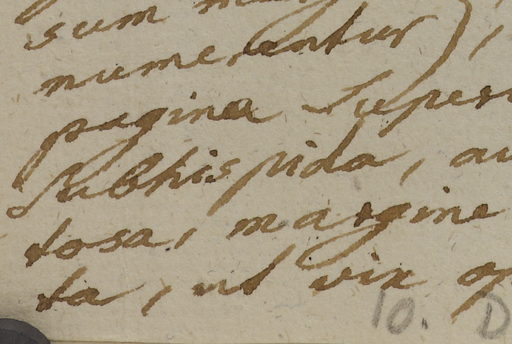 sum
numerentur),
pagina Super
Subhispida, au
tosa, margine
ta, ut vix op
10. D